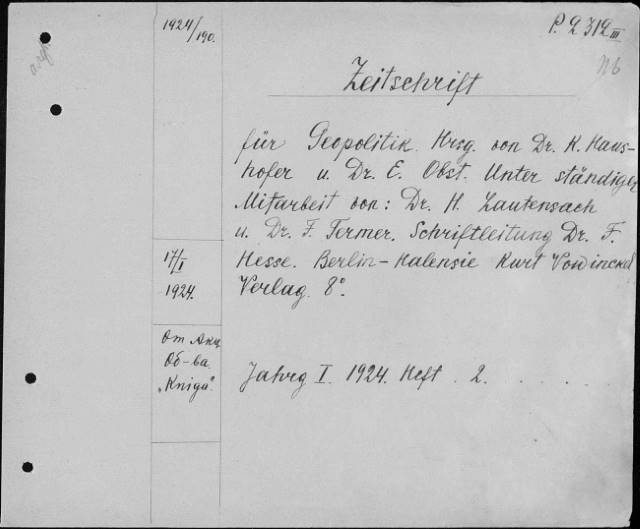 1924/190.
P. 2 312 III
Zeitschrift
für Geopolitik. Hrsg. von Dr. K. Haus-
hofer u. Dr. E. Obst. Unter ständiger
Mitarbeit von: Dr. H. Lautensach
u. Dr. F. Termer. Schriftleitung Dr. F.
Hesse. Berlin-Halensie Kurt Vowinckel
Verlag. 8°.
17/I
1924.
От Акц.
Об-ва
"Kniga".
Jahrg I. 1924. Heft . 2. . . . . .